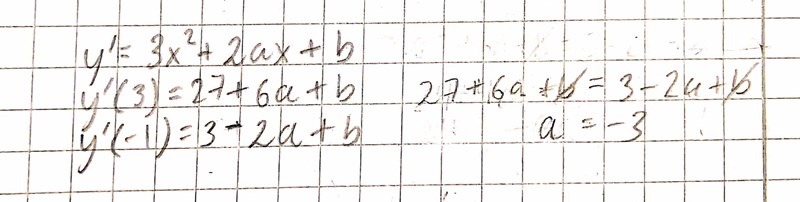 y' = 3x² + 2ax + b
y'(3) = 27 + 6a + b 27 + 6a + b = 3 - 2a + b
y'(-1) = 3 - 2a + b a = -3